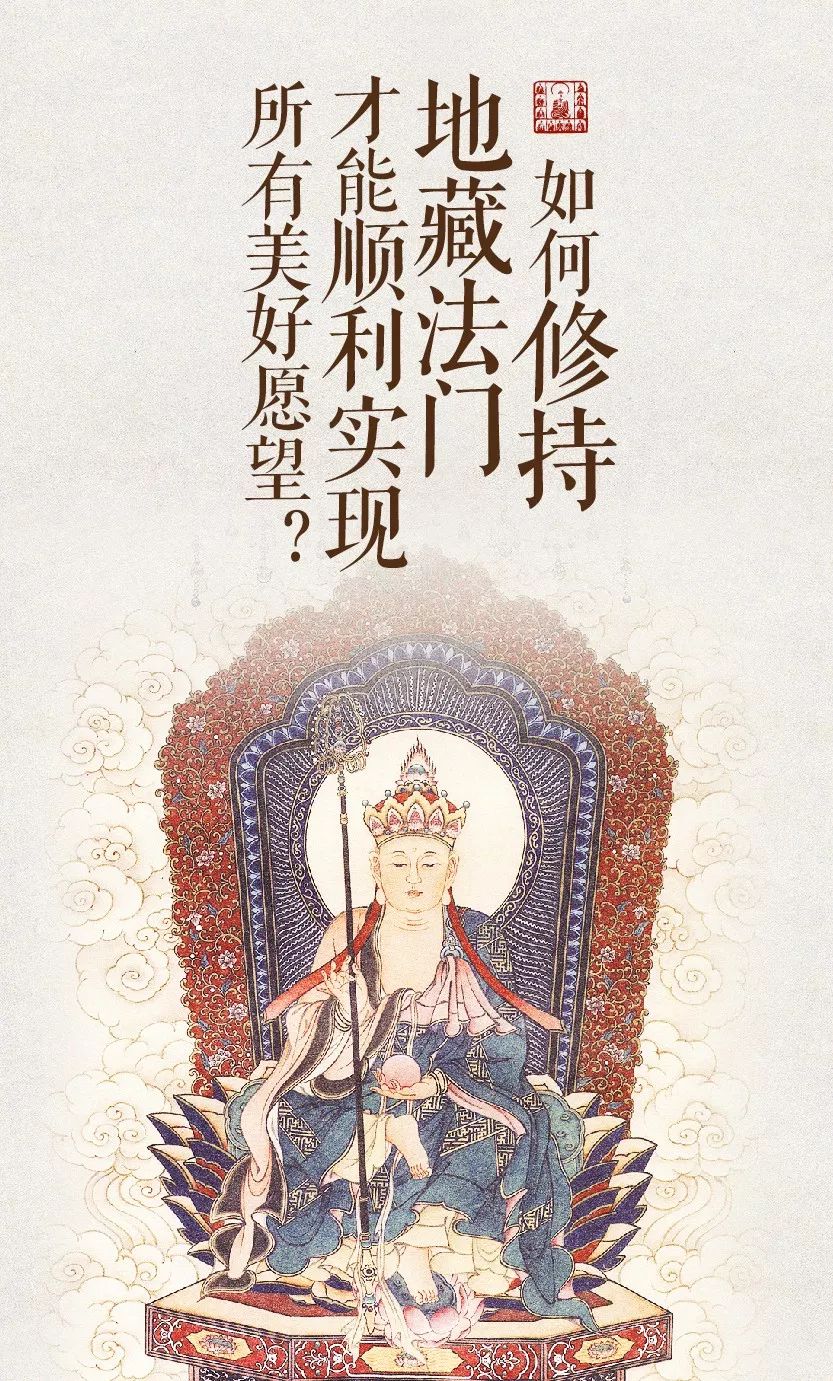 如何修持
地藏法门
才能顺利实现
所有美好愿望？